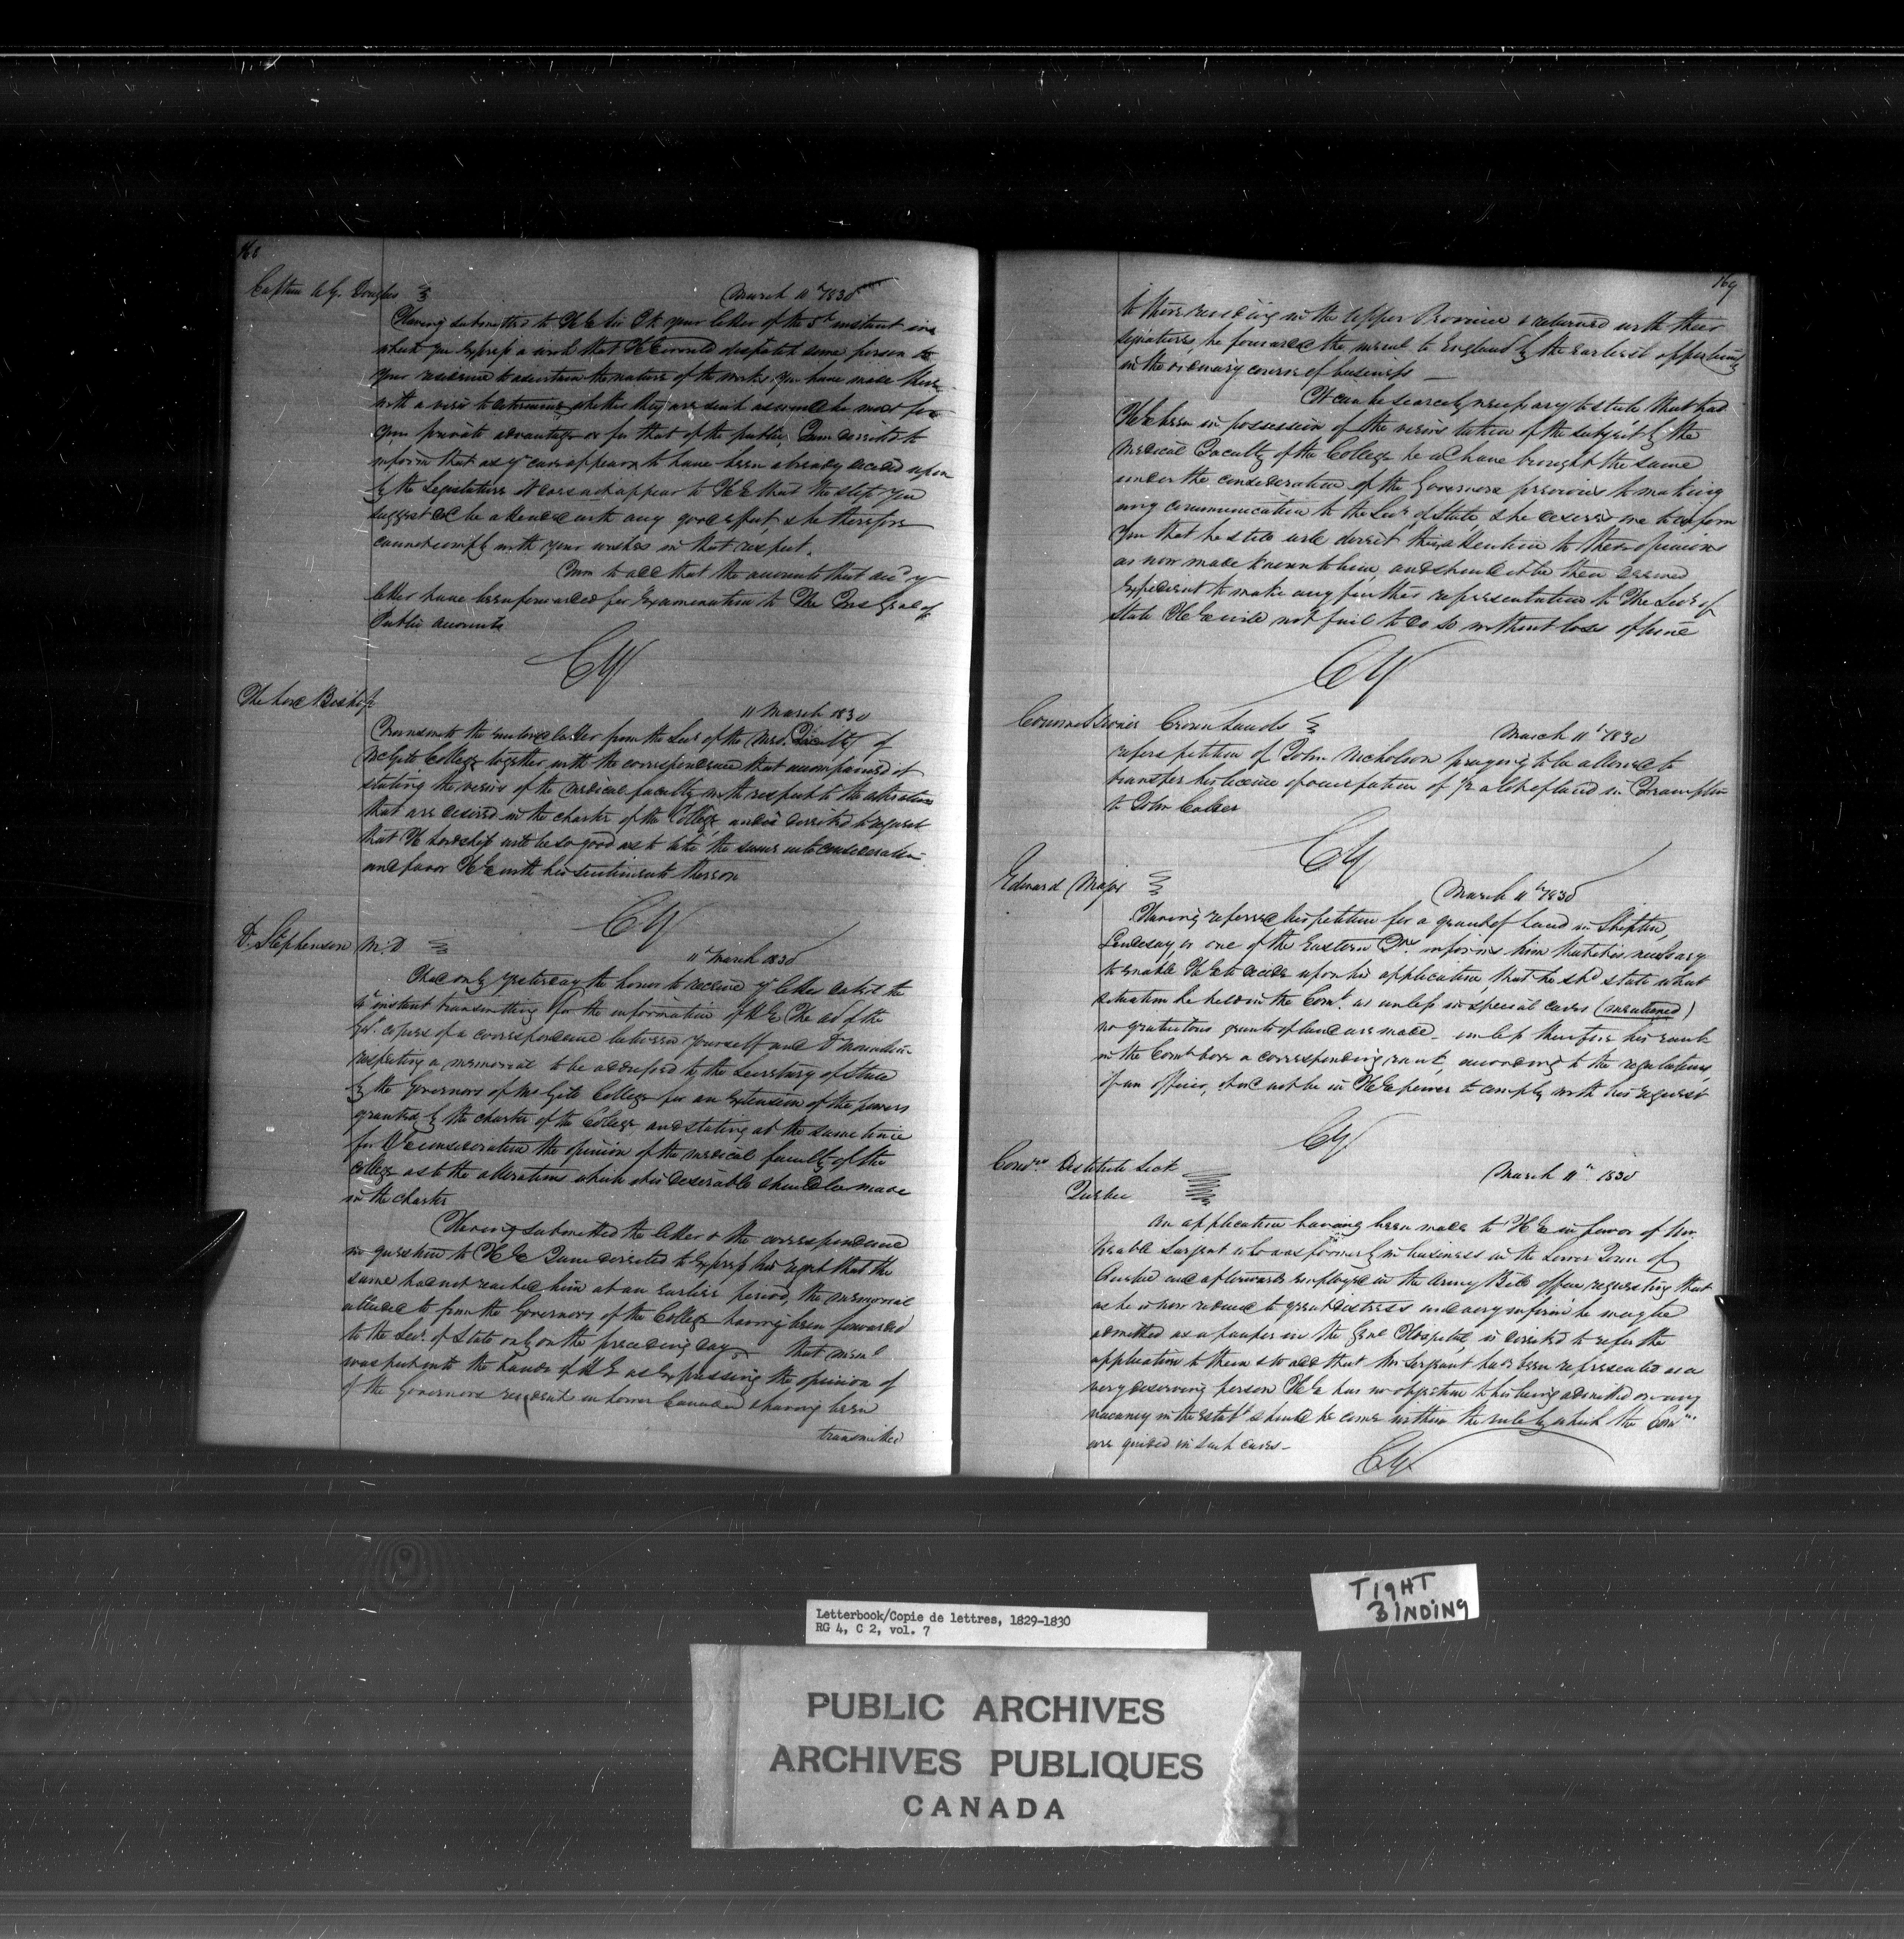 168
Captain A. G. Douglas
March 11th 1830
Having submitted to H E Sir J K your letter of the 5th instant in
which you express a wish that H E would despatch some person to
your residence to ascertain the nature of the works you have made there
with a view to determine whether they are such as may be most for
your private advantage or for that of the public, I am directed to
inform that as yr case appears to have been already decided upon
by the Legislature it does not appear to H E that the step you
suggest wd be attended with any good effect, & he therefore
cannot comply with your wishes in that respect.
I am to add that the accounts that accd yr
letter have been forwarded for examination to The Ins Genl of
Public accounts
CY
The Lord Bishop
11 March 1830
Transmits the enclosed letter from the Secy of the Med. Faculty of
McGill College together with the correspondence that accompanied it
stating the views of the medical faculty with respect to the alterations
that are desired in the charter of the College, and is directed to request
that His Lordship will be so good as to take the same into consideration
and favor H E with his sentiments thereon
CY
Dr. Stephenson M.D
11th March 1830
I had only yesterday the honor to receive yr letter dated the
instant transmitting for the information of H E The ad of the
Govt. copies of a correspondence between yourself and Dr
respecting a memorial to be addressed to the Secretary of State
by the Governors of McGill College for an extension of the powers
granted by the charter of the College, and stating at the same time
for consideration the opinion of the medical faculty of the
College as to the alterations which it is desirable should be made
in the charter
Having submitted the letter & the correspondence
in question to H E I am directed to express his regret that the
same had not reached him at an earlier period, the memorial
alluded to from the Governors of the College having been forwarded
to the Secy. of State only on the preceding day. That meml
was put into the hands of H E as expressing the opinion of
of the Governors resident in Lower Canada & having been
transmitted
169
to those residing in the Upper Province & returned with their
signatures, he forwarded the same to England by the earliest opportunity
in the ordinary course of business
It can be scarcely necessary to state that had
H E been in possession of the views taken of the subject by the
Medical Faculty of the College he wd have brought the same
under the consideration of the Governors previous to making
any communication to the Secy of State, & he desires me to inform
you that he will direct their attention to these opinions
as now made known to him, and should it be then deemed
expedient to make any further representation to The Secy of
State H E will not fail to do so without loss of time
CY
Commissioner Crown Lands
March 11th 1830
refers petition of John Nicholson praying to be allowed to
transfer his license of occupation of of land in Frampton
to John
CY
Edward Major
March 11th 1830
Having referred his petition for a grant of Land in Shipton,
or one of the Eastern informs him that it is necessary
to enable H E to decide upon his application, that he shd state what
situation he held in the Comt. as unless in special cases (mentioned)
no gratuitous grants of land are made. unless therefore his rank
in the Comt bore a corresponding rank, according to the regulations,
of an officer, it wd not be in H E power to comply with his request
CY
Comrs Destitute Sick
Quebec
March 11th 1830
An application having been made to H E in favor of Mr.
Sargent who was formerly in business in the Lower Town of
Quebec and afterwards employed in the Army Bill office requesting that
as he is now reduced to great distress and very infirm he may be
admitted as a pauper in the Genl Hospital, is directed to refer the
application to them & to add that Mr Sargent has been represented as a
very deserving person H E has no objection to his being admitted on any
vacancy in the estabt should he come within the rule by which the Comrs
are guided in such cases.
CY
Letterbook/Copie de lettres, 1829-1830
RG 4, C 2, vol. 7
TIGHT
BINDING
PUBLIC ARCHIVES
ARCHIVES PUBLIQUES
CANADA